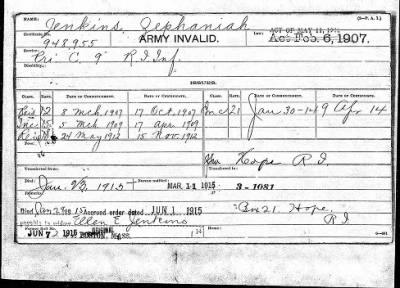 NAME: Jenkins, Zephaniah (3—P. A. L.)
Certificate No. 948955 ARMY INVALID. ACT OF MAY 11, 1912
Act Feb. 6, 1907.
Pri C. 9" R.I. Inf.
Disability:
ISSUES.
CLASS. RATE. DATE OF COMMENCEMENT. DATE OF CERTIFICATE. CLASS. RATE. DATE OF COMMENCEMENT. DATE OF CERTIFICATE.
Reis 12 8 Mch 1907 17 Oct. 1907 Inc 21 Jan 30-14 9 Apr 14
Inc 15 5 Mch 1909 17 Apr 1909
Reis 24 May 1912 15 Nov. 1912
Hope R.I.
Transferred from
Died: Jan. 1915 MAR. 11 1915 3-1081
Accrued order dated JUN 1 1915 Box 21 Hope,
payable to Ellen E. Jenkins R.I.
Former Roll No.
JUN 7 1915 BOSTON, MASS.